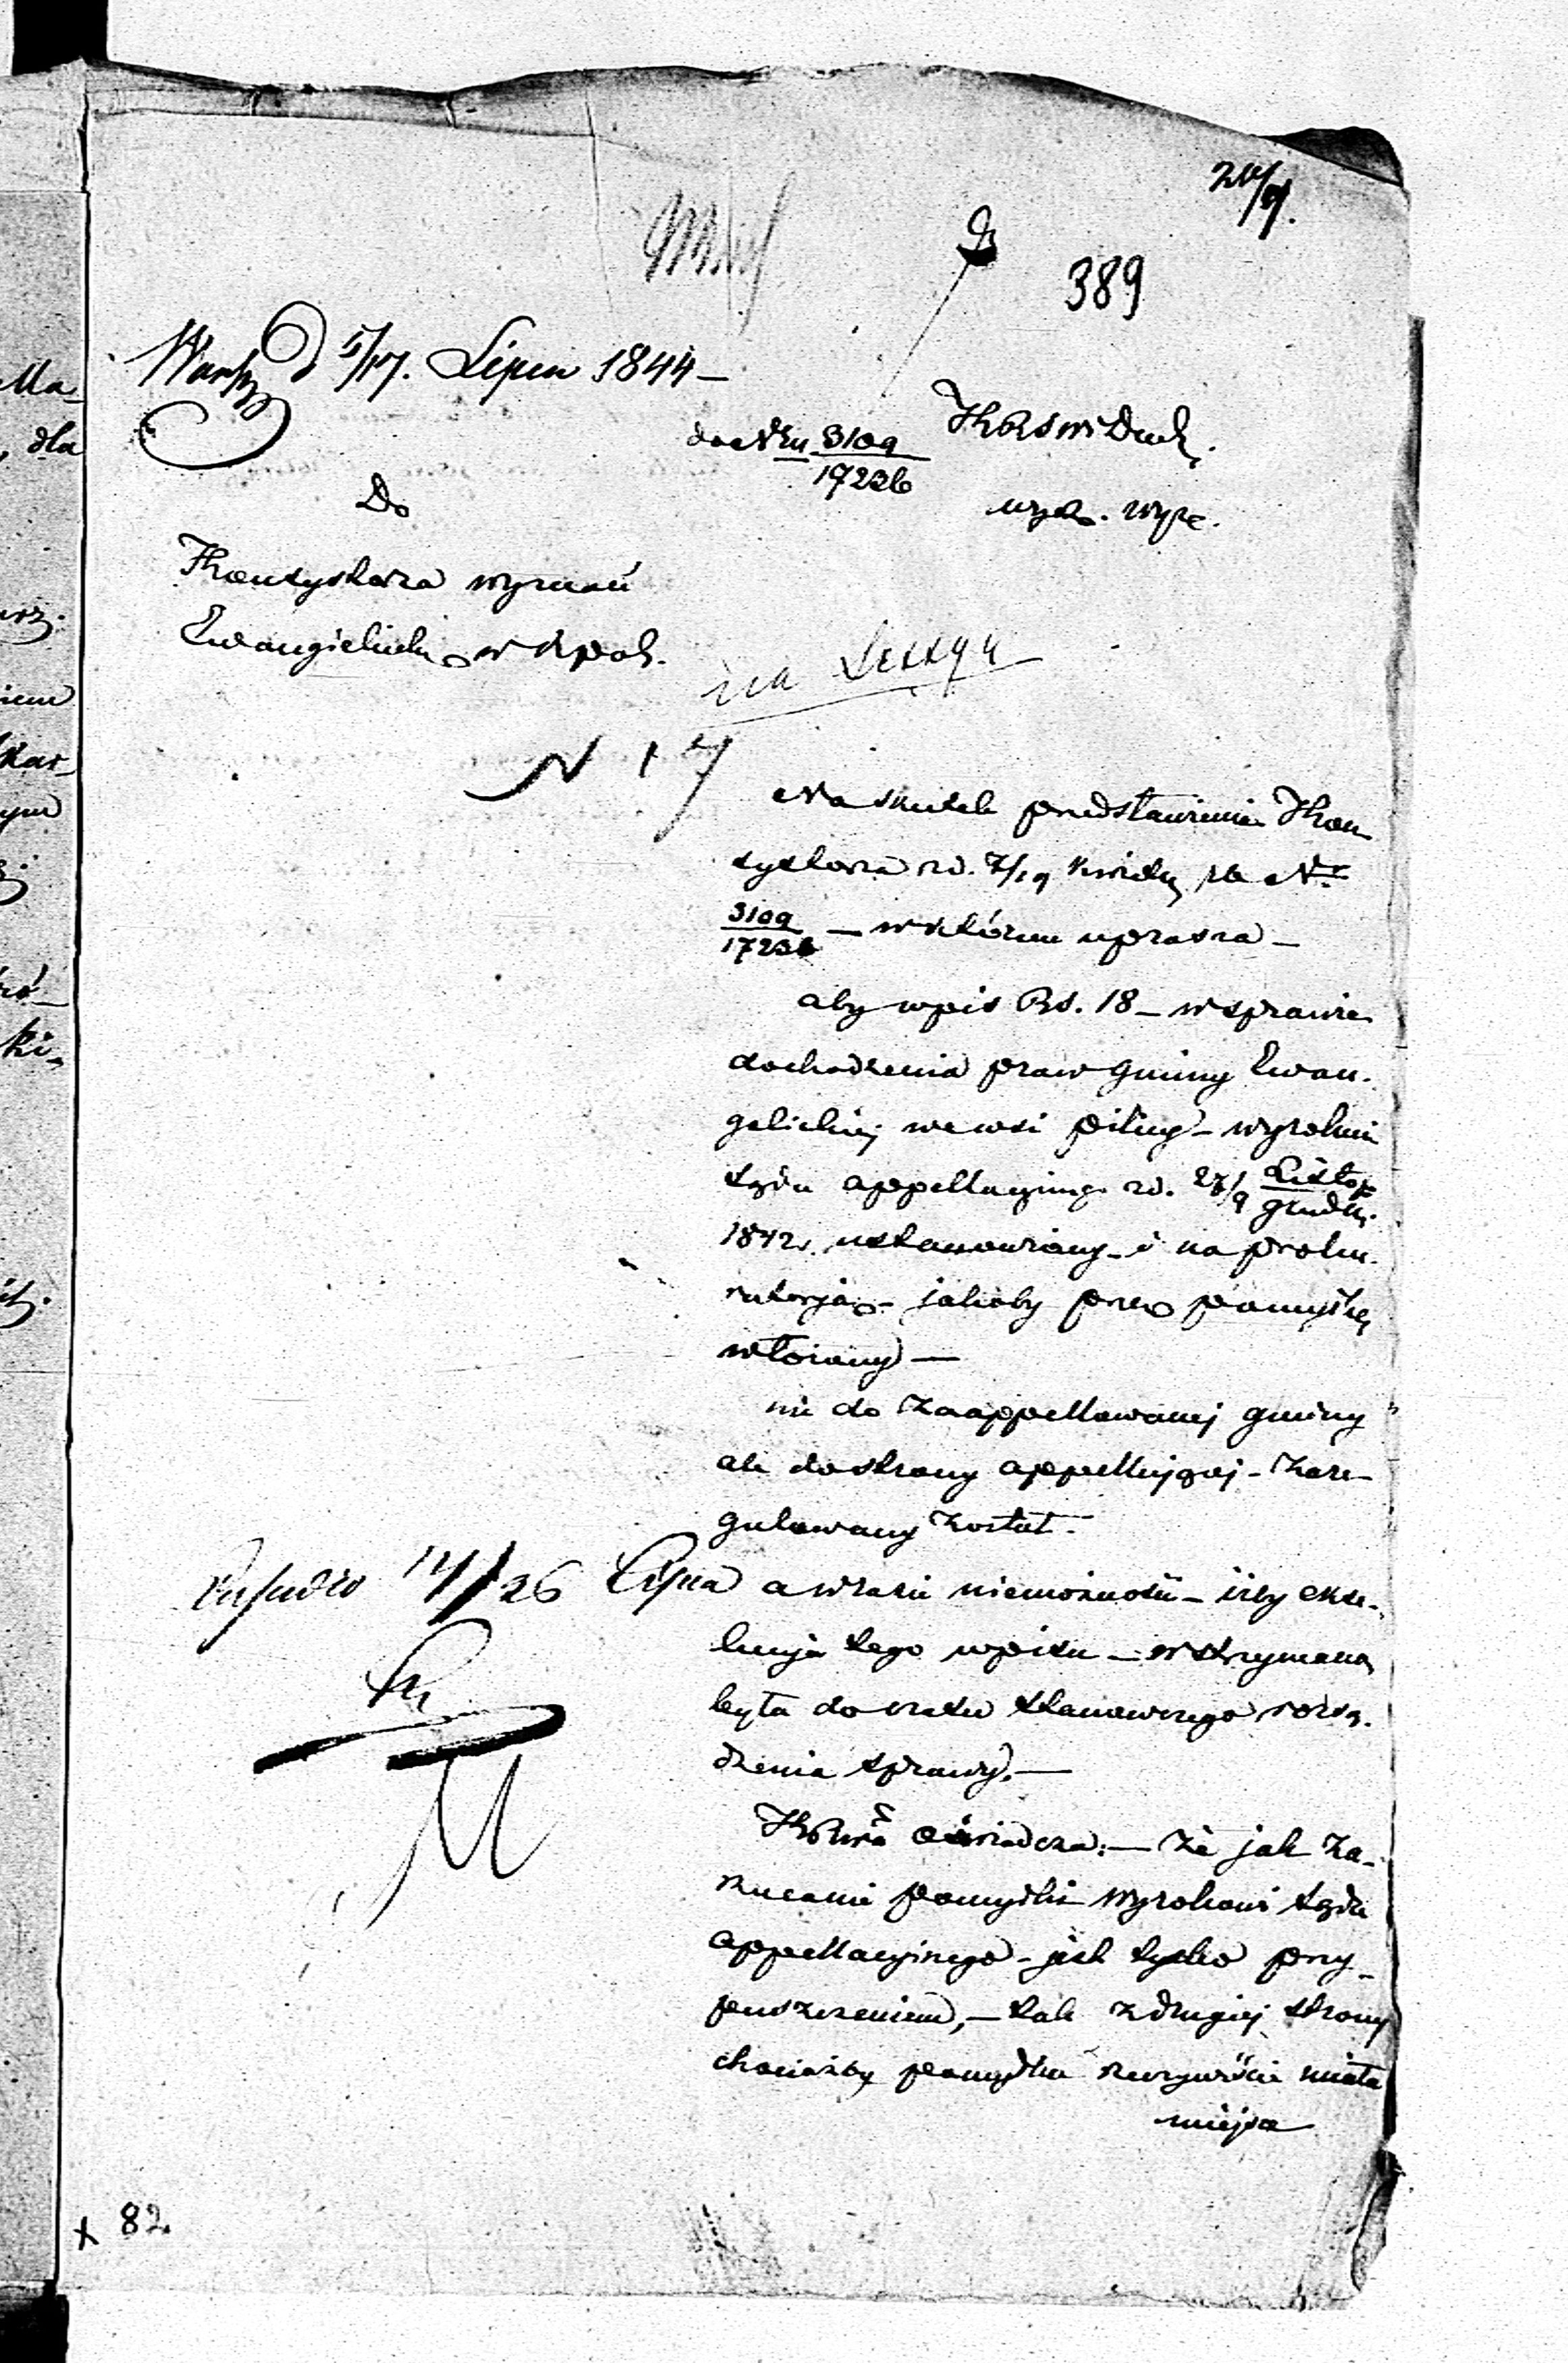 389
d 5/17. Lipca 1844 –
do Nru 3109
17236
Do
Konsystorza wyznań
Ewangielick. w Król.
wyd. wyzn.
N 17
Na skutek przedstawienia Kon
systorza z d. 7/19 Kwietn, Nr
3109
17236 — w którem uprasza –
aby wpis Rs. 18 – w sprawie
dochodzenia praw gminy Ewan.
gelickiej we wsi Pilicy – wyrokiem
Sądu appellacyjnego z d. 27/9 Listop
Grudn.
1842 r. ustanowiony – i na proku.
ratorją – jakoby przez pomyłkę
włożony —
nie do zaappellowanej gminy
ale do strony appellującej – zare–
gulowany został.
14/26 Lipca
a w razie niemożności – iżby exe–
kucja tego wpisu — wstrzymaną
była do czasu stanowczego rozsą.
dzenia sprawy. —
oświadcza: — że jak za–
rzucanie pomyłki wyrokowi Sądu
appellacyjnego – jest tylko przy–
puszczeniem, — tak z drugiej strony
chociażby pomyłka rzeczywiście miała
miejsce
x 82.
Ma–
, dla